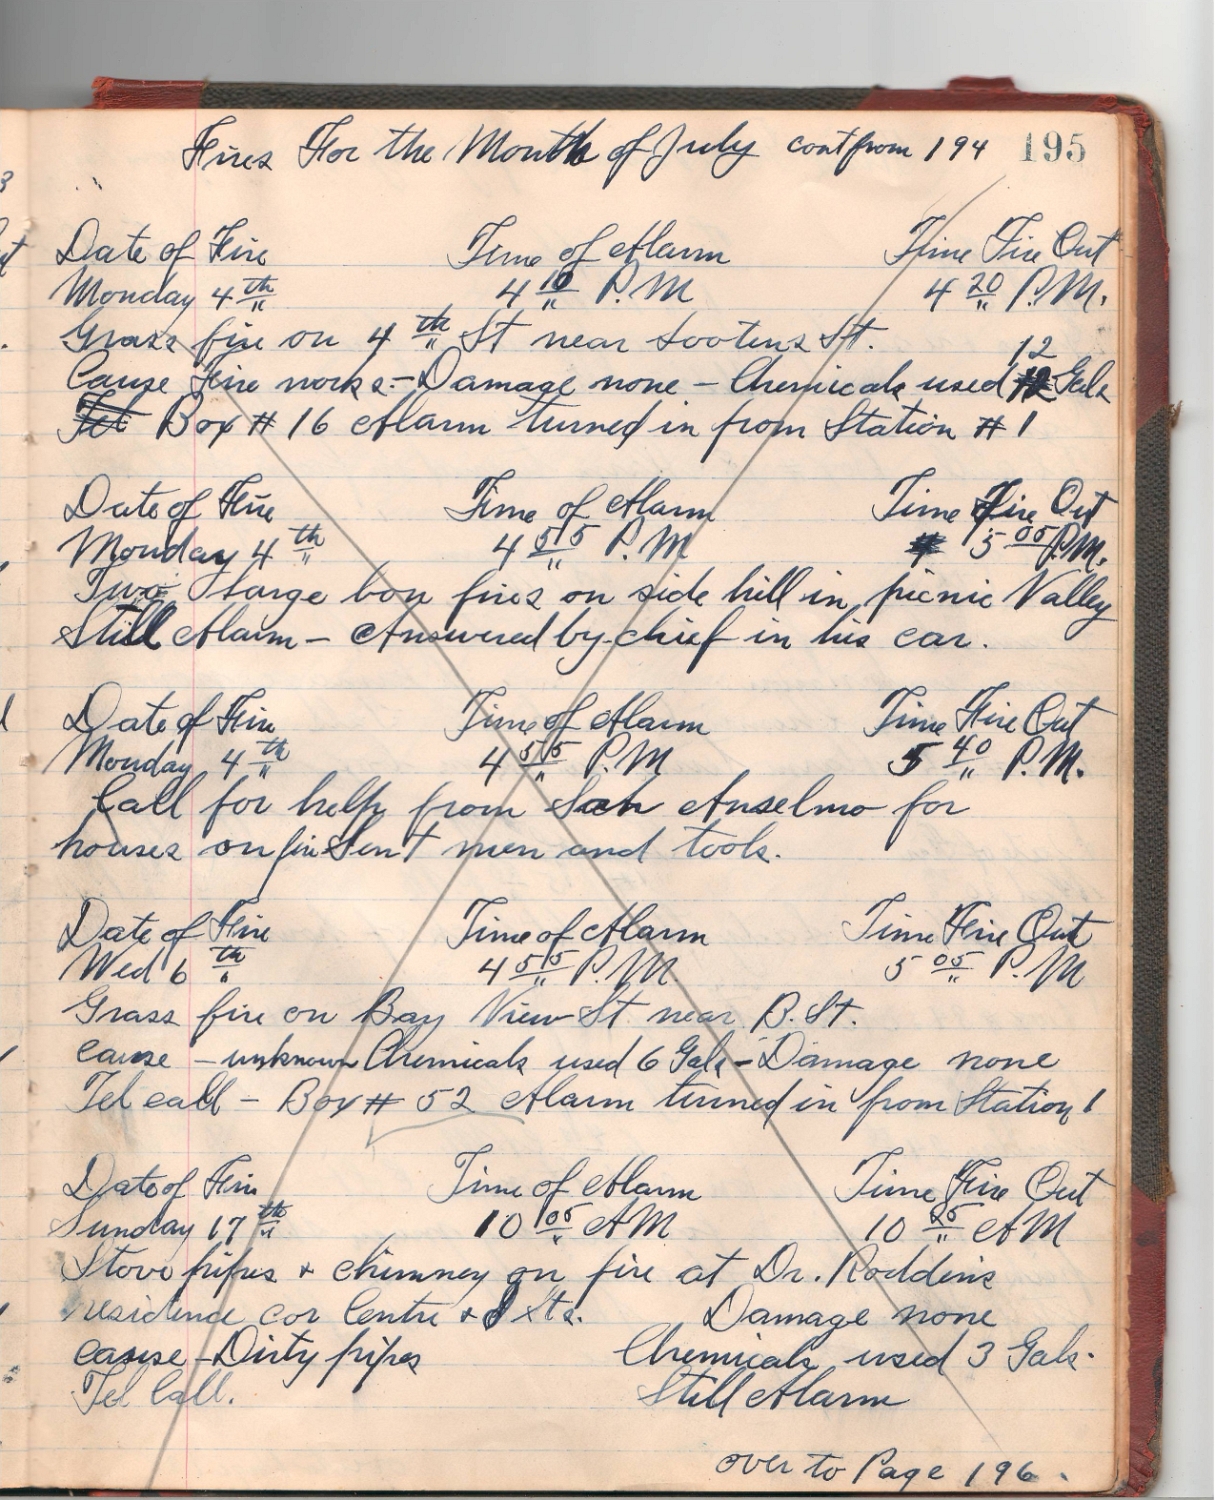 Fires For the Month of July cont from 194 195
Date of Fire Time of Alarm Time Fire Out
Monday 4th 4 10 P.M 4 20 P.M.
Grass fire on 4th St near Lootens St.
12
Cause Fire works - Damage none - Chemicals used 12 Gals
Tel Box # 16 Alarm turned in from Station # 1
Date of Fire Time of Alarm Time Fire Out
Monday 4th 4 55 P.M 5 00 P.M.
Two large bon fires on side hill in picnic Valley
Still Alarm - Answered by chief in his car.
Date of Fire Time of Alarm Time Fire Out
Monday 4th 4 55 P.M 5 40 P.M.
Call for help from San Anselmo for
houses on fire Sent men and tools.
Date of Fire Time of Alarm Time Fire Out
Wed 6th 4 55 P.M. 5 05 P.M
Grass fire on Bay View St near B. St.
cause - unknown Chemicals used 6 Gals - Damage none
Tel call - Box # 52 Alarm turned in from Station 1
Date of Fire Time of Alarm Time Fire Out
Sunday 17th 10 05 AM 10 25 AM
Stove pipes + chimney on fire at Dr. Roddens
residence cor Centre + Sts. Damage none
cause - Dirty pipes Chemicals used 3 Gals.
Tel Call. Still Alarm
over to Page 196.